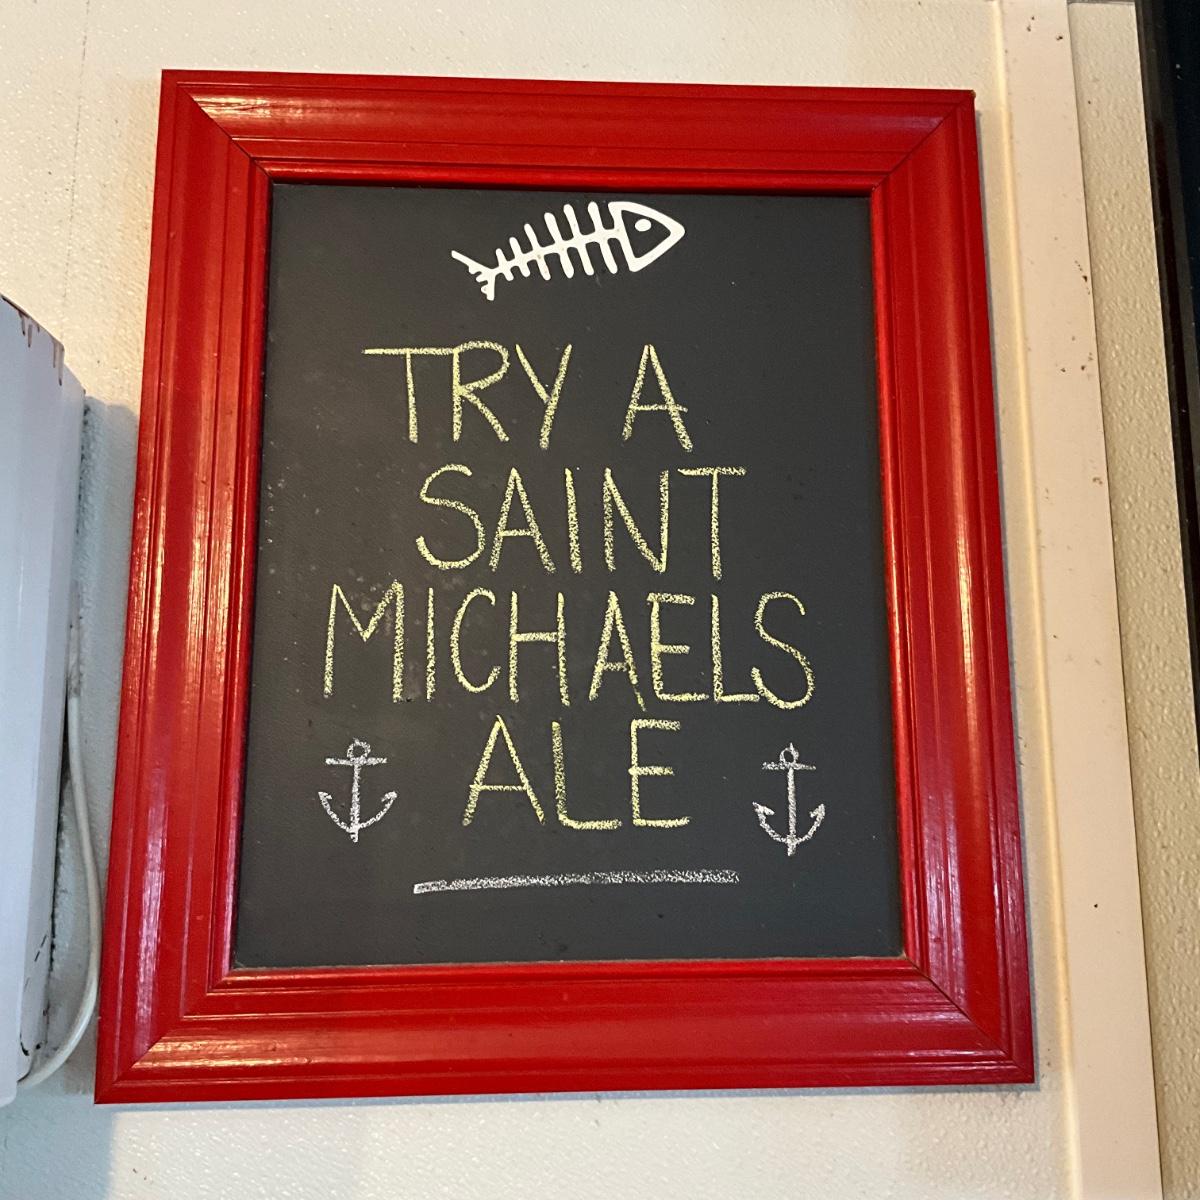 TRY A
SAINT
MICHAELS
ALE